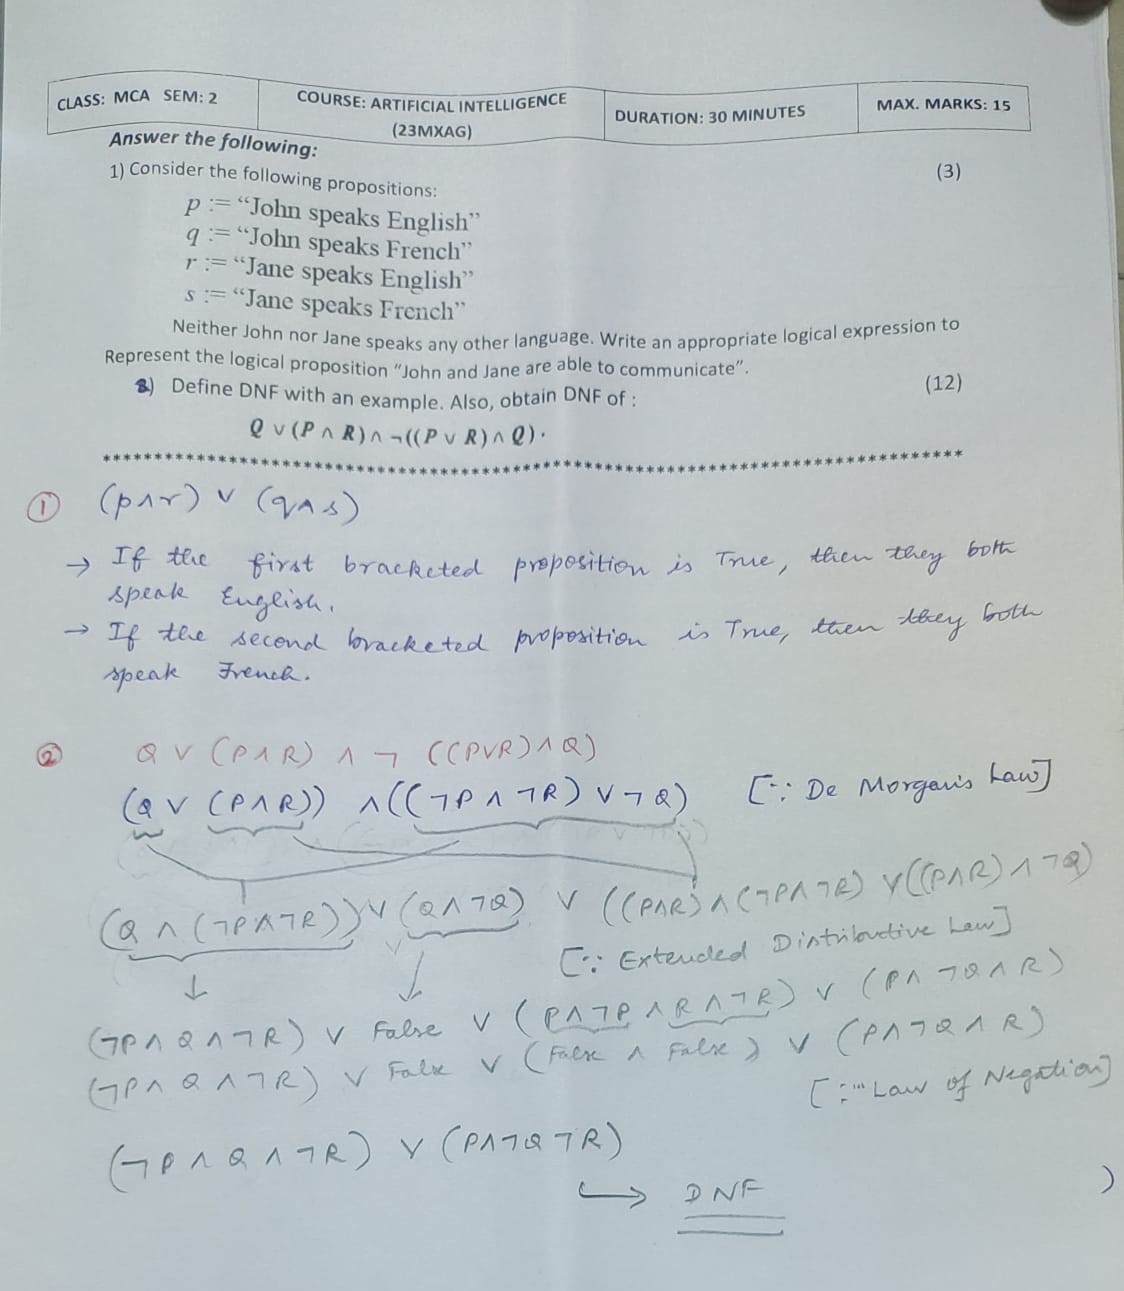 CLASS: MCA SEM: 2
COURSE: ARTIFICIAL INTELLIGENCE
(23MXAG)
DURATION: 30 MINUTES
MAX. MARKS: 15
Answer the following:
1) Consider the following propositions: (3)
p := “John speaks English”
q := “John speaks French”
r := “Jane speaks English”
s := “Jane speaks French”
Neither John nor Jane speaks any other language. Write an appropriate logical expression to
Represent the logical proposition “John and Jane are able to communicate”.
2) Define DNF with an example. Also, obtain DNF of : (12)
Q ∨ (P ∧ R) ∧ ¬((P ∨ R) ∧ Q).
****************************************************************************************
① (p∧r) ∨ (q∧s)
→ If the first bracketed proposition is True, then they both
speak English.
→ If the second bracketed proposition is True, then they both
speak French.
② Q ∨ (P∧R) ∧ ¬ ((P∨R)∧Q)
(Q ∨ (P∧R)) ∧((¬P∧¬R) ∨¬Q) [∵ De Morgan's Law]
(Q ∧ (¬P∧¬R))∨(Q∧¬Q) ∨ ((P∧R)∧(¬P∧¬R) ∨((P∧R)∧¬Q)
[∵ Extended Distributive Law]
(¬P∧Q∧¬R) ∨ False ∨ (P∧¬P∧R∧¬R) ∨ (P∧¬Q∧R)
(¬P∧Q∧¬R) ∨ False ∨ (False ∧ False) ∨ (P∧¬Q∧R)
[∵ Law of Negation]
(¬P∧Q∧¬R) ∨ (P∧¬Q¬R)
↪ DNF